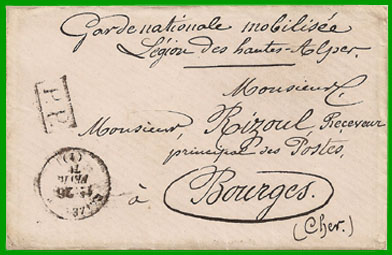 Garde nationale mobilisée
Légion des hautes-Alpes.
Monsieur
P.P.
Monsieur, Rizoul, Receveur
principal des Postes,
à Bourges.
(Cher.)